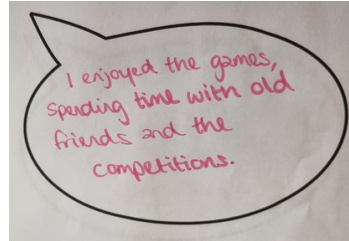 I enjoyed the games,
spending time with old
friends and the
competitions.